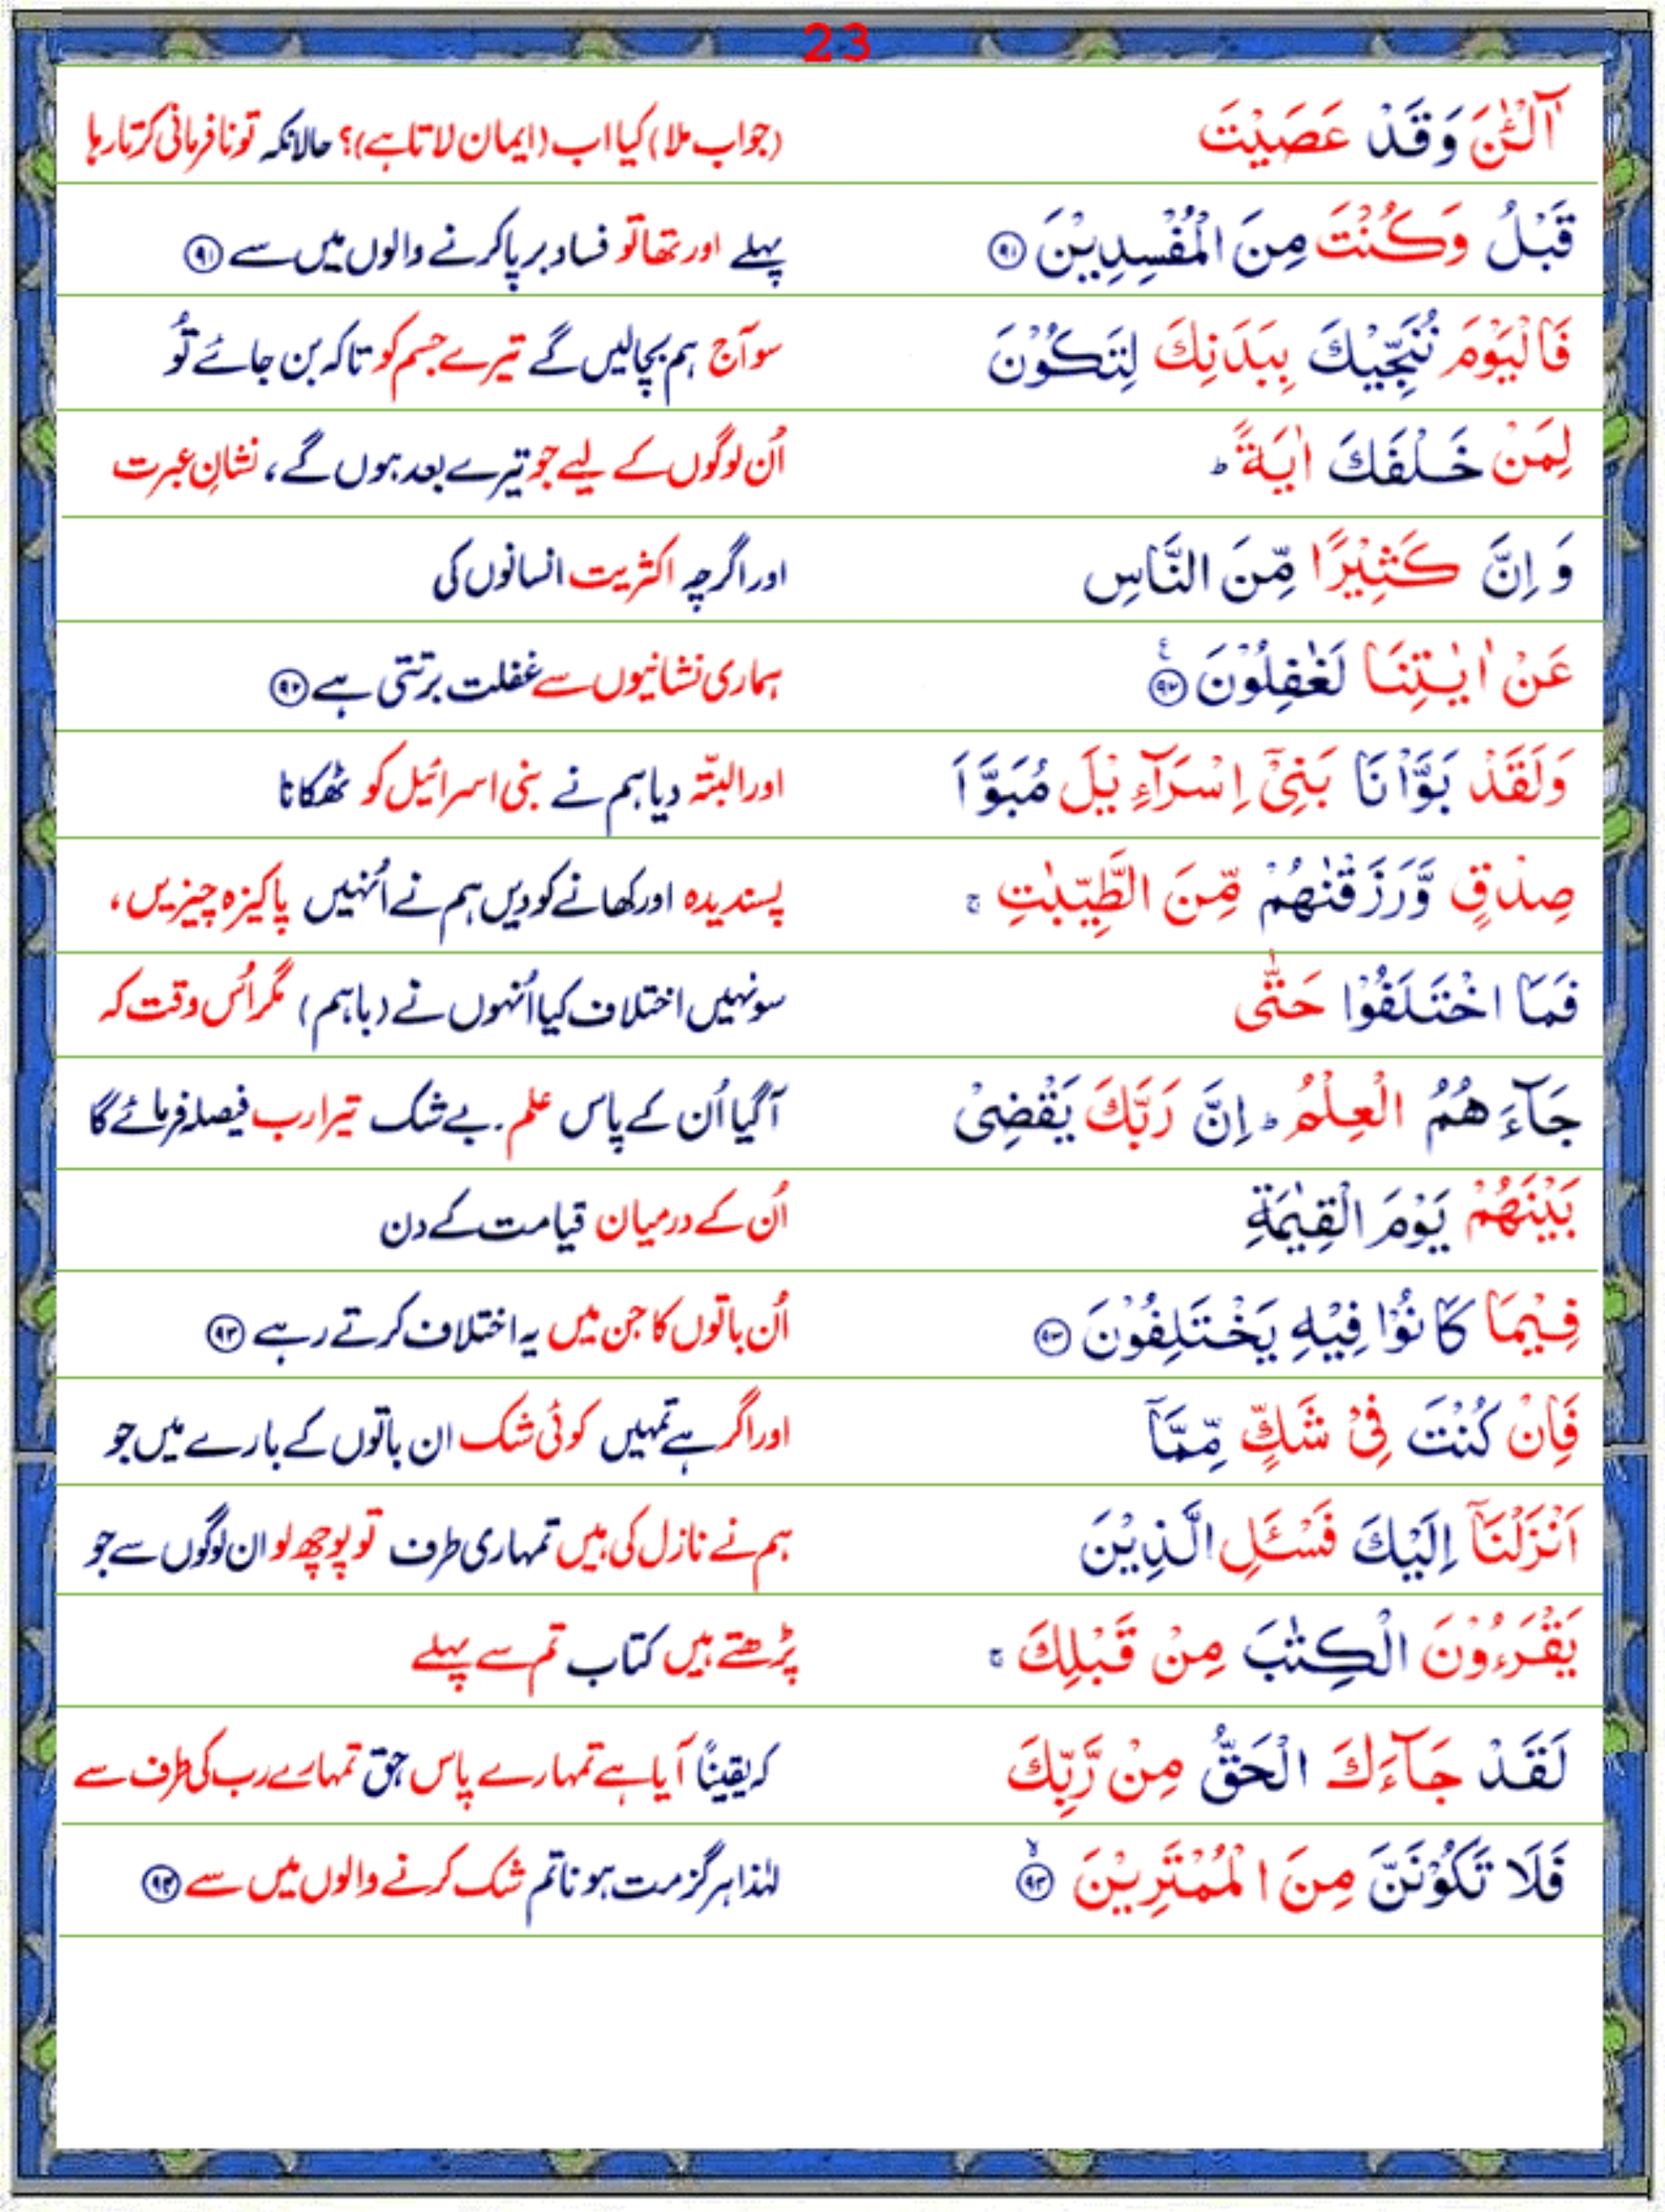 23
آٰلْـٰٔنَ وَقَدْ عَصَيْتَ (جواب ملا) کیا اب (ایمان لاتا ہے)؟ حالانکہ تو نافرمانی کرتا رہا
قَبْلُ وَكُنْتَ مِنَ الْمُفْسِدِيْنَ ۹۱ پہلے اور تھا تو فساد برپا کرنے والوں میں سے ۹۱
فَالْيَوْمَ نُنَجِّيْكَ بِبَدَنِكَ لِتَكُوْنَ سو آج ہم بچالیں گے تیرے جسم کو تاکہ بن جائے تُو
لِمَنْ خَلْفَكَ اٰيَةً ؕ اُن لوگوں کے لیے جو تیرے بعد ہوں گے، نشانِ عبرت
وَ اِنَّ كَثِيْرًا مِّنَ النَّاسِ اور اگرچہ اکثریت انسانوں کی
عَنْ اٰيٰتِنَا لَغٰفِلُوْنَ ۹۲ ہماری نشانیوں سے غفلت برتتی ہے ۹۲
وَلَقَدْ بَوَّاْنَا بَنِيْٓ اِسْرَآءِيْلَ مُبَوَّاَ اور البتّہ دیا ہم نے بنی اسرائیل کو ٹھکانا
صِدْقٍ وَّرَزَقْنٰهُمْ مِّنَ الطَّيِّبٰتِ ۚ پسندیدہ اور کھانے کو دیں ہم نے اُنہیں پاکیزہ چیزیں،
فَمَا اخْتَلَفُوْا حَتّٰى سو نہیں اختلاف کیا اُنہوں نے (باہم) مگر اُس وقت کہ
جَآءَهُمُ الْعِلْمُ ؕ اِنَّ رَبَّكَ يَقْضِىْ آگیا اُن کے پاس علم. بے شک تیرا رب فیصلہ فرمائے گا
بَيْنَهُمْ يَوْمَ الْقِيٰمَةِ اُن کے درمیان قیامت کے دن
فِيْمَا كَانُوْا فِيْهِ يَخْتَلِفُوْنَ ۹۳ اُن باتوں کا جن میں یہ اختلاف کرتے رہے ۹۳
فَاِنْ كُنْتَ فِىْ شَكٍّ مِّمَّآ اور اگر ہے تمہیں کوئی شک ان باتوں کے بارے میں جو
اَنْزَلْنَآ اِلَيْكَ فَسْـَٔلِ الَّذِيْنَ ہم نے نازل کی ہیں تمہاری طرف تو پوچھ لو ان لوگوں سے جو
يَقْرَءُوْنَ الْكِتٰبَ مِنْ قَبْلِكَ ۚ پڑھتے ہیں کتاب تم سے پہلے
لَقَدْ جَآءَكَ الْحَقُّ مِنْ رَّبِّكَ کہ یقینًا آیا ہے تمہارے پاس حق تمہارے رب کی طرف سے
فَلَا تَكُوْنَنَّ مِنَ الْمُمْتَرِيْنَ ۙ ۹۴ لہٰذا ہرگز مت ہونا تم شک کرنے والوں میں سے ۹۴